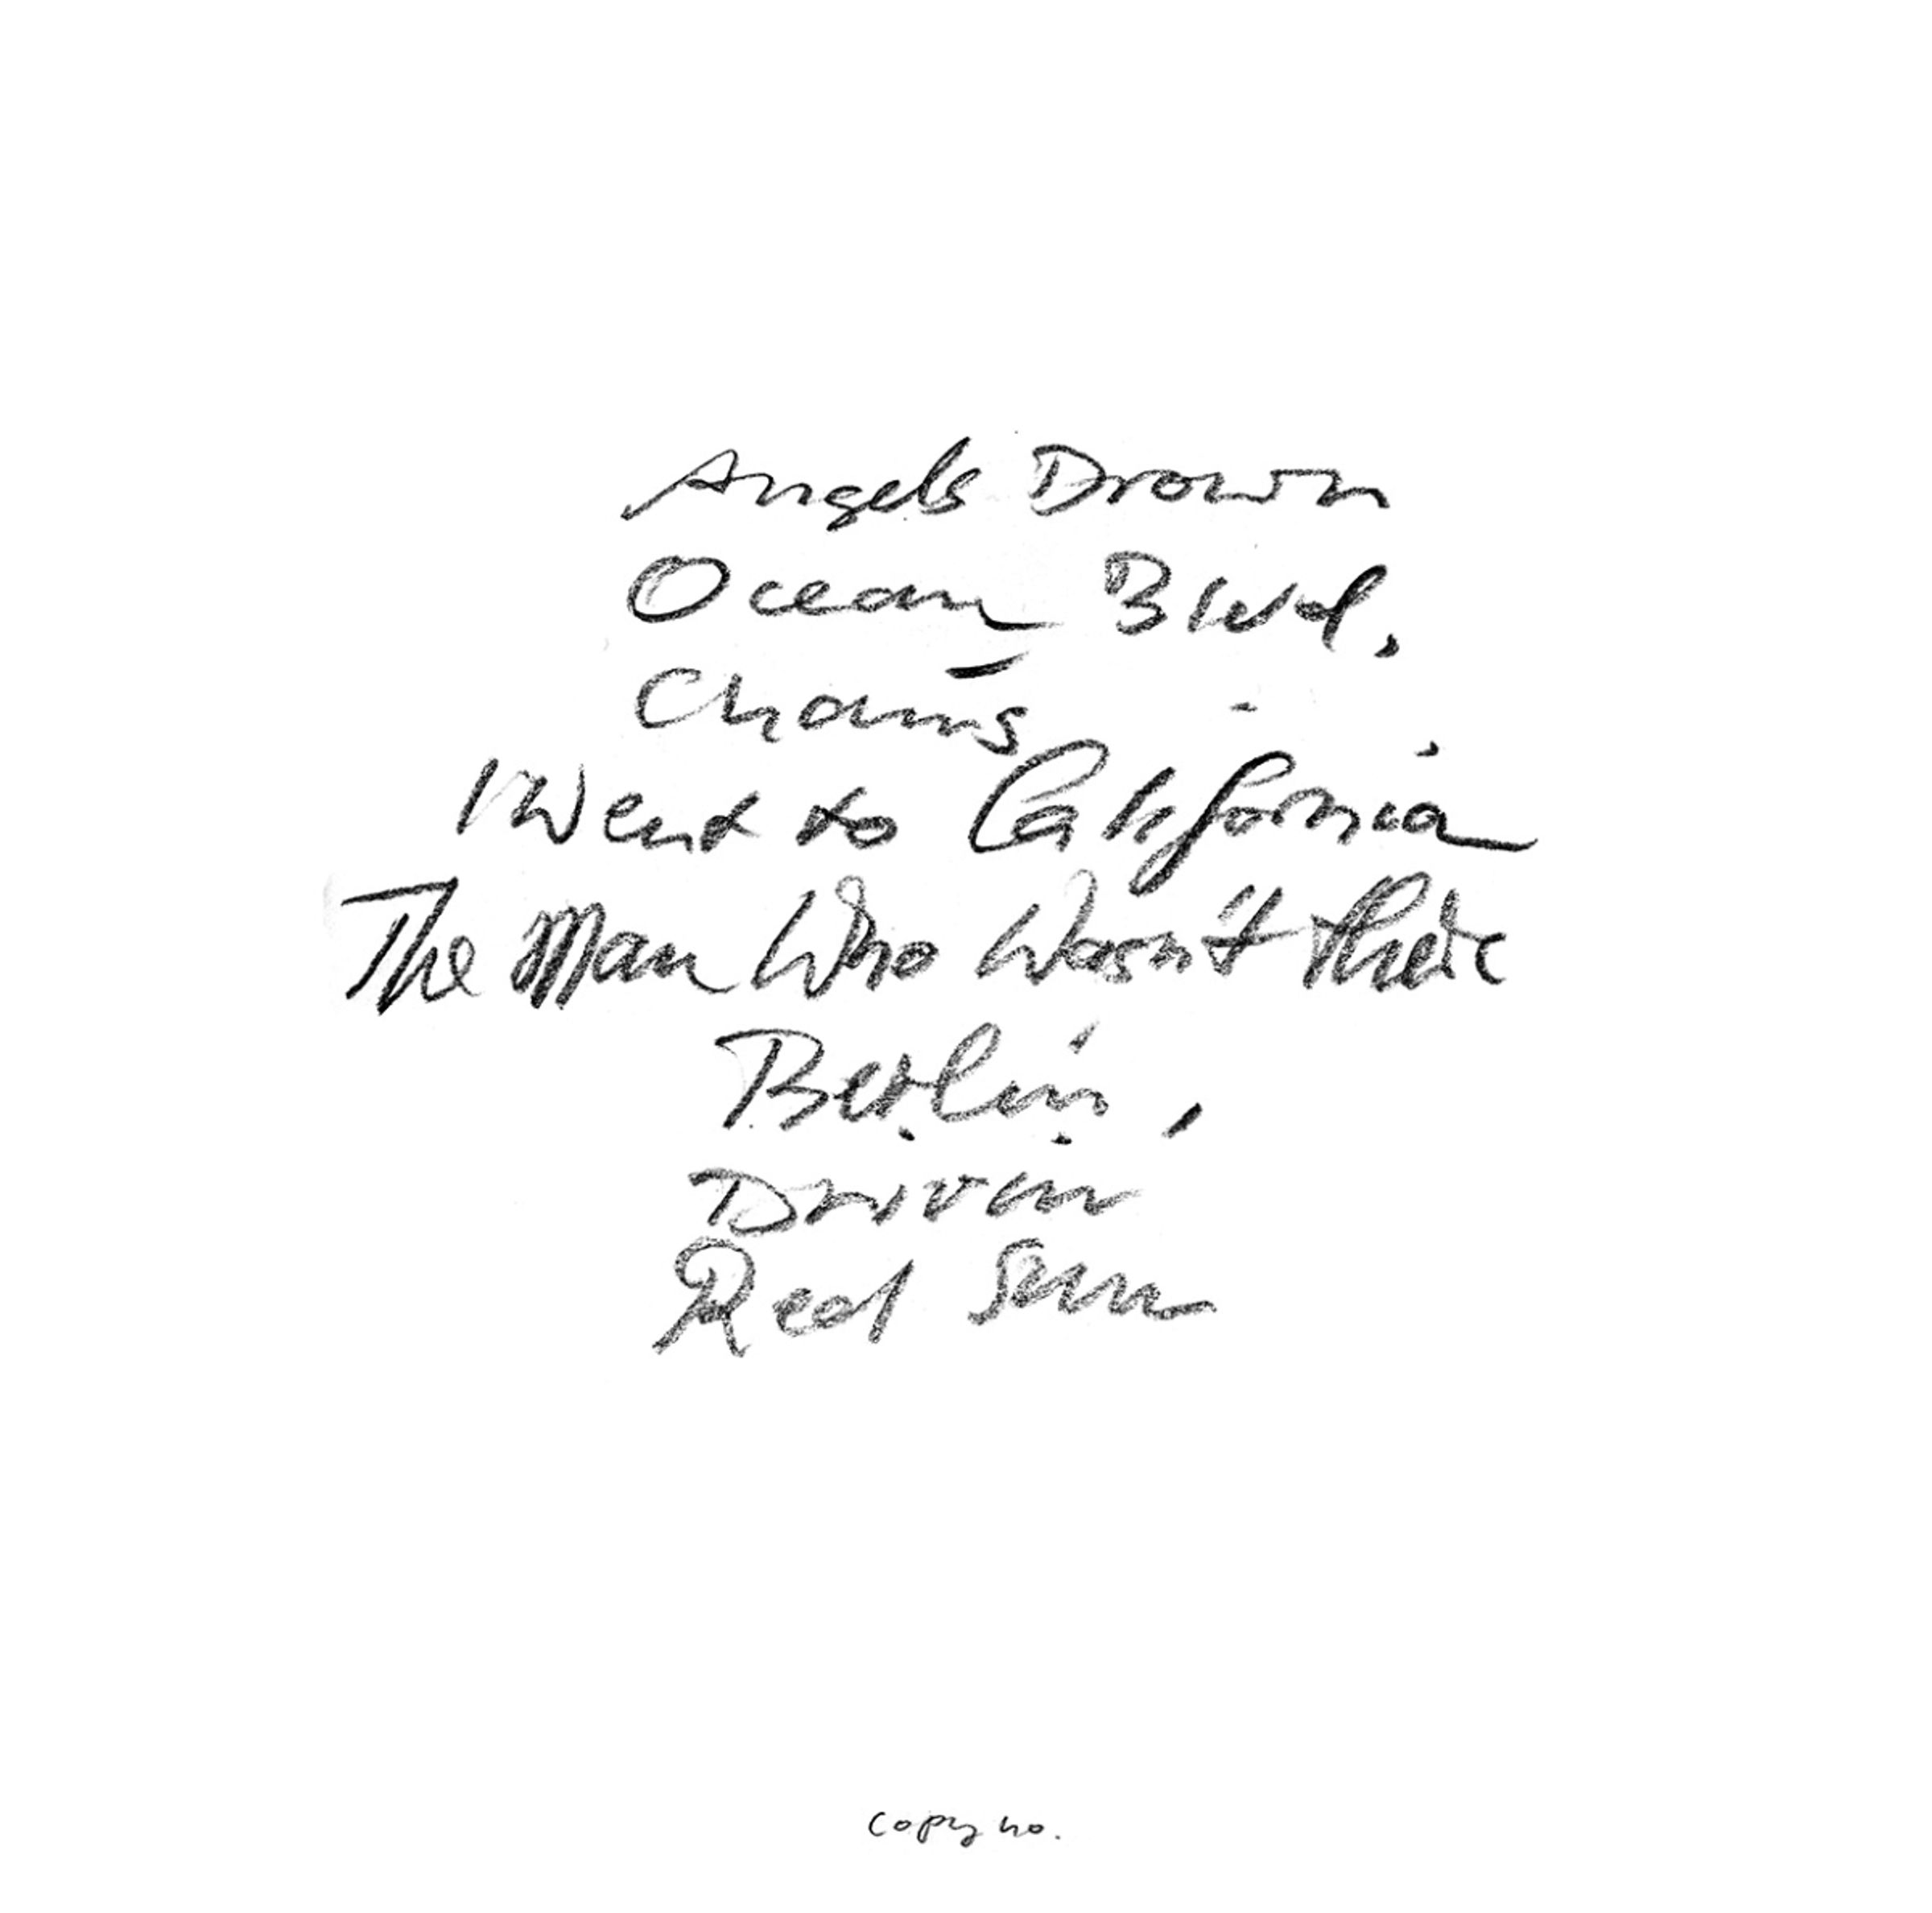 Angels Drown
Ocean Blvd.
Chains
I Went to California
The Man Who Wasn't there
Berlin,
Driven
Red Sun
copy no.